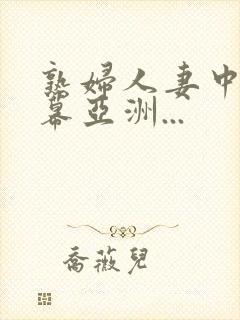 熟婦人妻中
幕亞洲...
喬薇兒